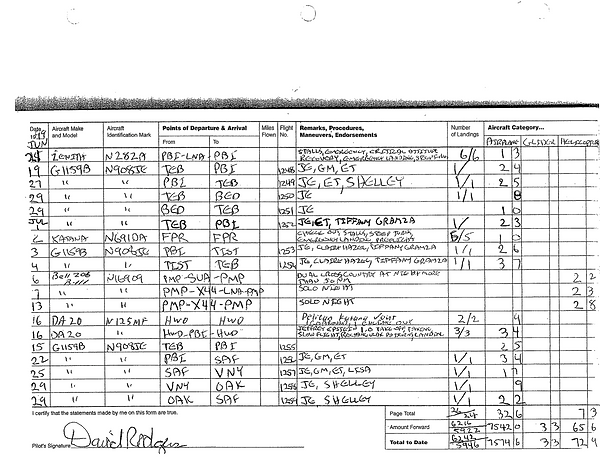 Date 1999 Aircraft Make and Model Aircraft Identification Mark Points of Departure & Arrival From To Miles Flown Flight No. Remarks, Procedures, Maneuvers, Endorsements Number of Landings Aircraft Category...
JUN AIRPLANE GLIDER HELICOPTER
ZENITH N282A PBI-LNA-PBI STALLS, EMERGENCY, CRITICAL ATTITUDE RECOVERY, EMERGENCY LANDING, 6/6 1 3
19 G1159B N908JE TEB PBI 1248 JE, GM, ET 1/ 2 4
27 " " PBI TEB 1249 JE, ET, SHELLEY 1/1 2 5
29 " " TEB BED 1250 JE 1/1 8
29 " " BED TEB 1251 JE 1 0
JUL 1 " " TEB PBI 1252 JE, ET, TIFFANY GRAMZA 1/ 2 3
2 N691DA FPR FPR CHECK OUT, STALLS, STEEP TURNS, EMERGENCY LANDING 5/5 1 0
3 G1159B N908JE PBI TIST 1253 JE, CLAIRE HAZEL, TIFFANY GRAMZA 1/1 2 6
4 " " TIST TEB 1254 JE, CLAIRE HAZEL, TIFFANY GRAMZA 1/1 3 7
6 Bell 206 B-III N16909 PMP-SUA-PMP DUAL CROSS COUNTRY AT NIGHT MORE THAN 50 NM 2 2
7 " " PMP-X44-LNA-PMP SOLO NIGHT 2 3
13 " " PMP-X44-PMP SOLO NIGHT 2 8
16 DA20 N125MF HWO HWO 2/2 9
16 DA20 " HWO-PBI-HWO JEFFREY EPSTEIN 1.0 TAKE OFF, SLOW FLIGHT, 3/3 3 4
15 G1159B N908JE TEB PBI 1255 2 5
22 " " PBI SAF JE, GM, ET 1/1 3 4
25 " " SAF VNY 1257 JE, GM, ET, LISA 1/1 1 7
29 " " VNY OAK 1258 JE, SHELLEY 9
29 " " OAK SAF 1259 JE SHELLEY 1/1 2 2
I certify that the statements made by me on this form are true. Page Total 26/24 32 6 7 3
Amount Forward 6216/5922 7542 0 3 3 65 6
Pilot's Signature David Rodgers Total to Date 6242/5946 7574 6 3 3 72 9